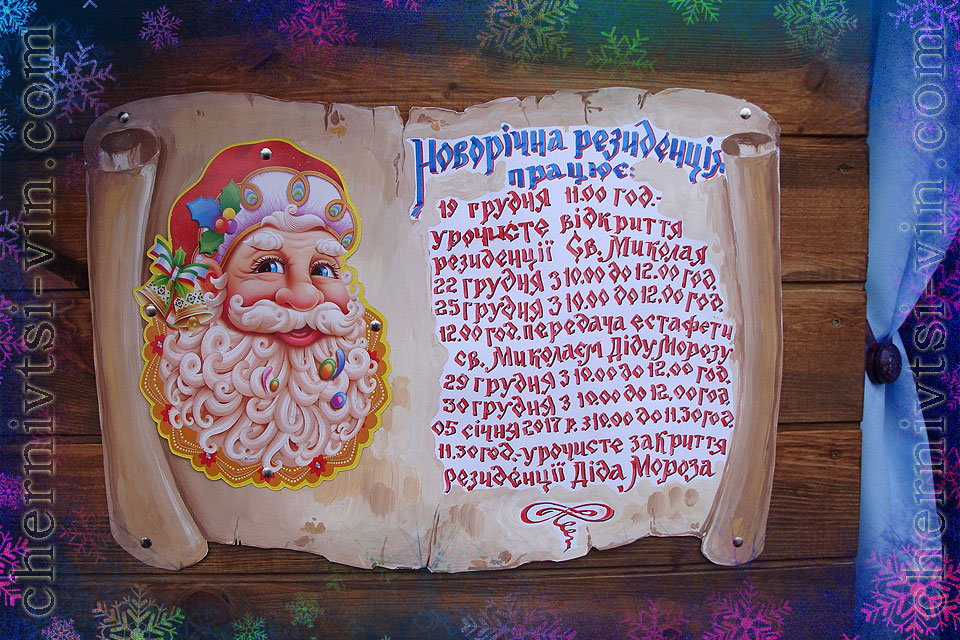 chernivtsi-vin.com
Новорічна резиденція
працює:
19 грудня 11.00 год.-
урочисте відкриття
резиденції Св. Миколая
22 грудня з 10.00 до 12.00 год.
25 грудня з 10.00 до 12.00 год.
12.00 год. передача естафети
св. Миколаєм Діду Морозу
29 грудня з 10.00 до 12.00 год.
30 грудня з 10.00 до 12.00 год.
05 січня 2017 р. з 10.00 до 11.30 год.
11.30 год.-урочисте закриття
резиденції Діда Мороза
chernivtsi-vin.com